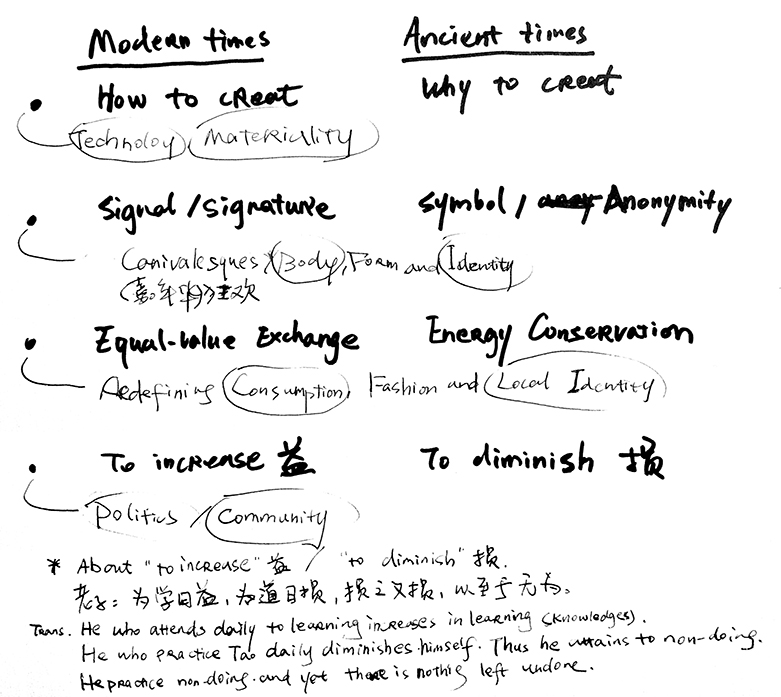 Modern times Ancient times
How to creat Why to creat
Technoloy, Materiality
Signal / Signature Symbol / Anonymity
Canivalesques, Body, Form and Identity
狂欢
Equal-value Exchange Energy Conservation
Redefining Consumption, Fashion and Local Identity
To increase 益 To diminish 损
Politics / Community
* About "to increase" 益 / "to diminish" 损.
老子: 为学日益, 为道日损, 损之又损, 以至于无为。
Trans. He who attends daily to learning increases in learning (Knowledges).
He who practice Tao daily diminishes himself. Thus he attains to non-doing.
He practice non-doing and yet there is nothig left undone.